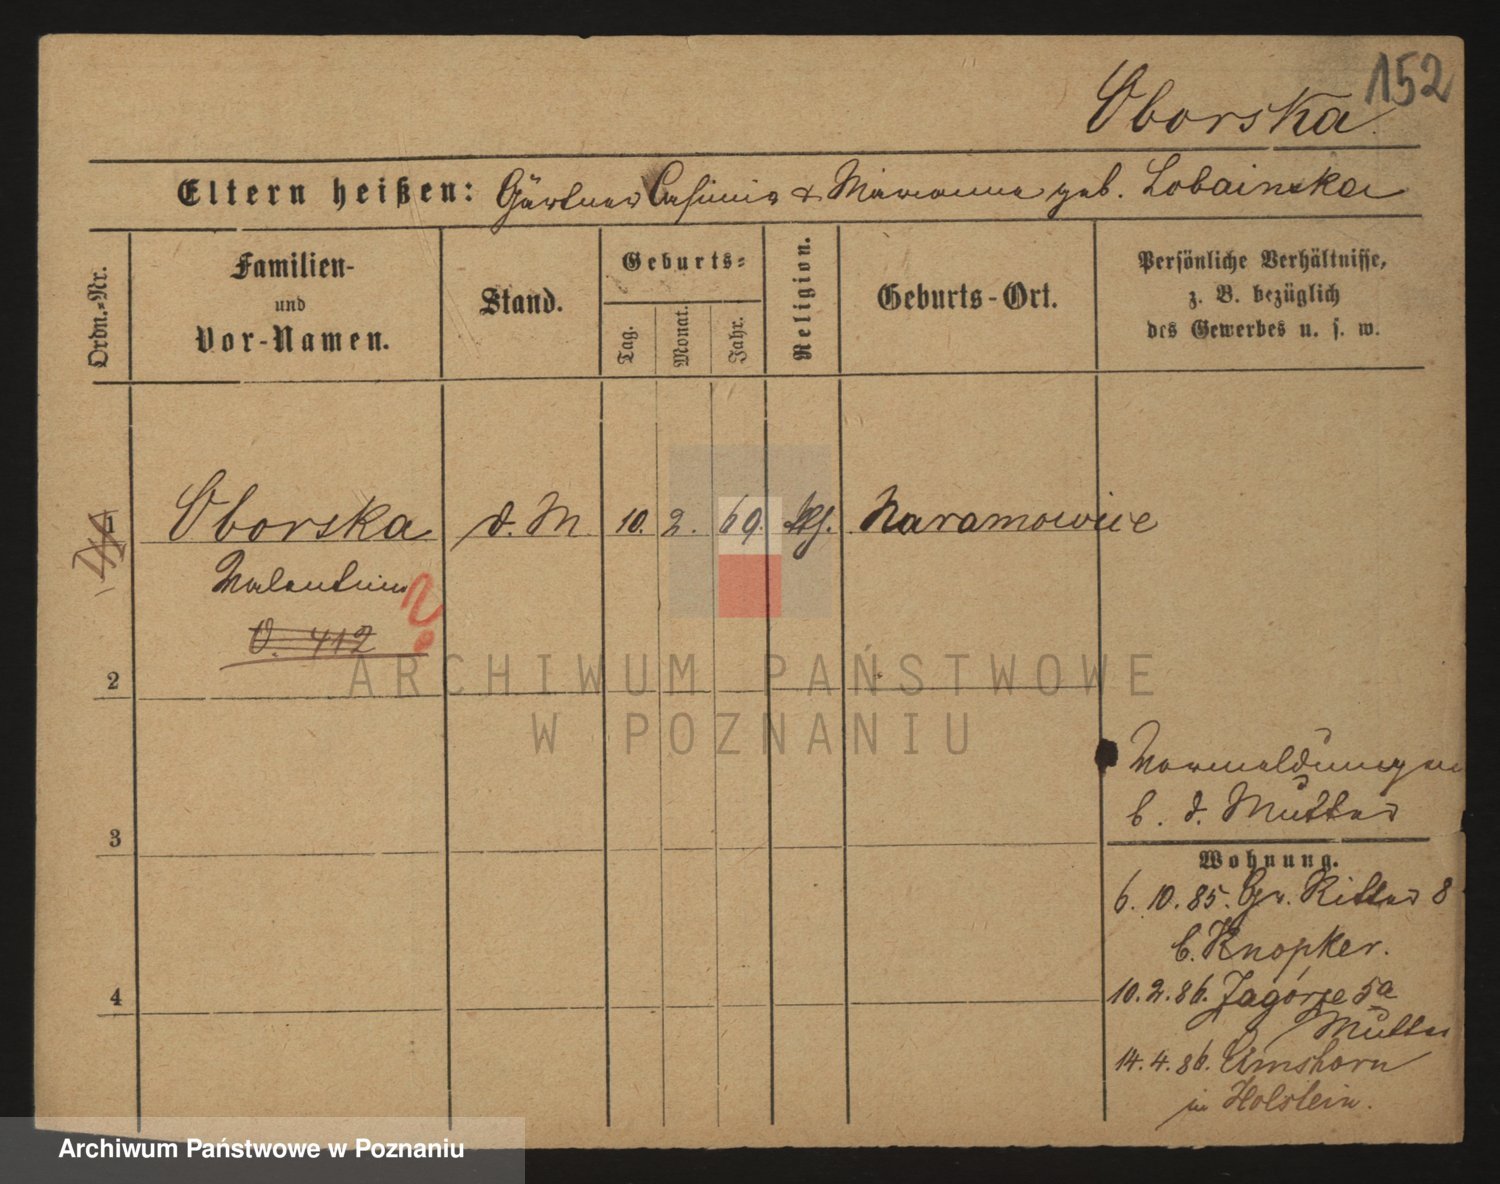 152
Oborska
Eltern heißen: Gärtner Casimir & Marianna geb. Lobainska
Ordn.-Nr.
Familien-
und
Vor-Namen.
Stand.
Geburts-
Tag.
Monat.
Jahr.
Religion.
Geburts-Ort.
Persönliche Verhältnisse,
z. B. bezüglich
des Gewerbes u. s. w.
1 Oborska d. M 10. 2. 69. Naramowice
Valentine ?
O. 412
2
ARCHIWUM PAŃSTWOWE
W POZNANIU
Vormeldungen
b. d. Mutter
3
Wohnung.
6. 10. 85. Gr. Ritter 8
b. Knopker.
4
10. 2. 86. Zagórze 5a
Mutter
14. 4. 86. Elmshorn
in Holstein.
Archiwum Państwowe w Poznaniu